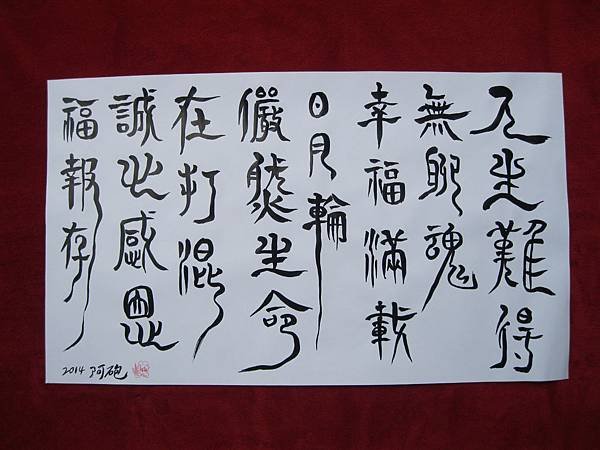 人生難得
無魂
幸福滿載
日月輪
儼然生命
在打混
誠心感恩
福報存
2014 阿砲